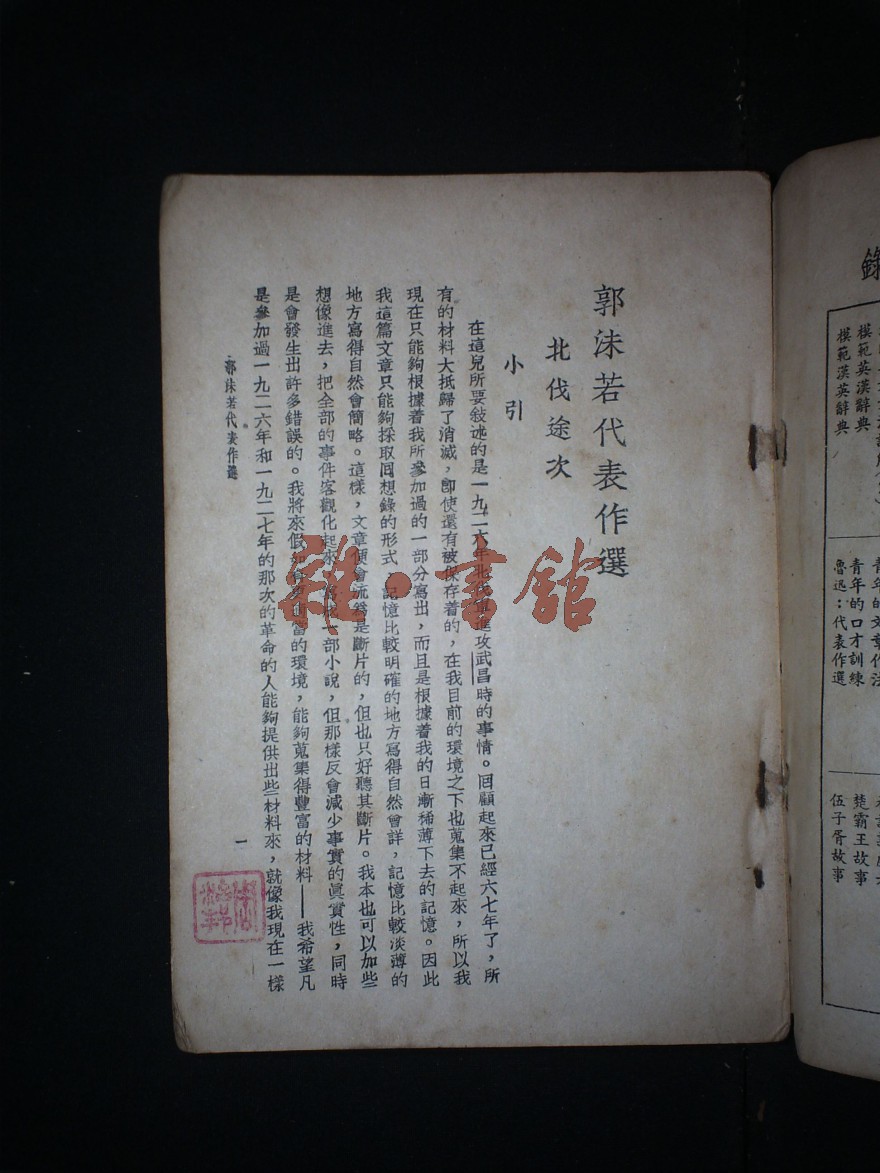 郭沫若代表作選
北伐途次
小引
在這兒所要敍述的是一九二六年北伐軍進攻武昌時的事情。回顧起來已經六七年了，所
有的材料大抵歸了消滅，卽使還有被保存着的，在我目前的環境之下也蒐集不起來，所以我
現在只能夠根據着我所參加過的一部分寫出，而且是根據着我的日漸稀薄下去的記憶。因此
我這篇文章只能夠採取回想錄的形式　記憶比較明確的地方寫得自然會詳，記憶比較淡薄的
地方寫得自然會簡略。這樣，文章便會流爲是斷片的，但也只好聽其斷片。我本也可以加些
想像進去，把全部的事件客觀化起來，成一部小說，但那樣反會減少事實的眞實性，同時
是會發生出許多錯誤的。我將來假如會當的環境，能夠蒐集得豐富的材料——我希望凡
是參加過一九二六年和一九二七年的那次的革命的人能夠提供出些材料來，就像我現在一樣
郭沫若代表作選
一
雜·書館
錄
模範英漢辭典
模範漢英辭典
靑年的文章作法
靑年的口才訓練
魯迅：代表作選
楚霸王故事
伍子胥故事